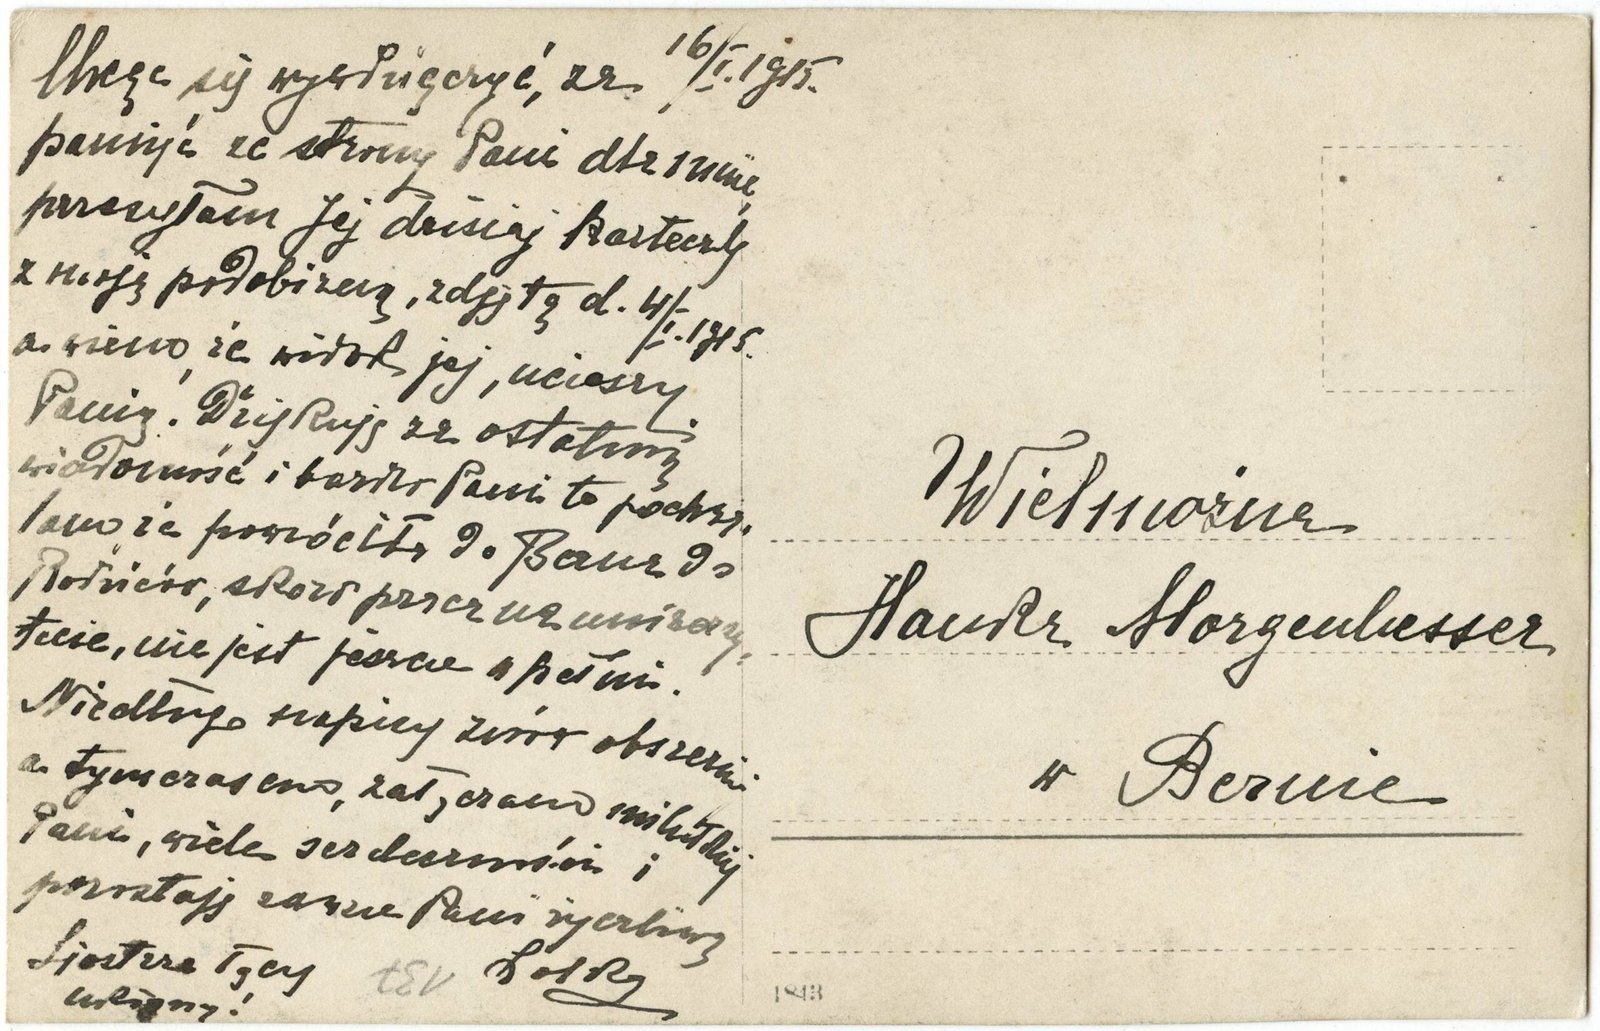 Chcąc się wywdzięczyć, za
16/I. 1915.
pamięć ze strony Pani dla mnie,
przesyłam Jej dzisiaj karteczkę
z moją podobizną, zdjętą d. 4/I. 1915.
a wiem, że widok jej, ucieszy
Panią. Dziękuję za ostatnią
wiadomość i bardzo Pani to
że powróciła do Berna do
Rodziców, skoro praca na
nie jest jeszcze w pełni.
Niedługo napiszę znów obszernie
a tymczasem, załączam milutkiej
Pani, wiele serdeczności i
pozostaję zawsze Pani życzliwą
Siostrze łączy
Lolką
ukłony!
Wielmożna
Hanka Morgenbesser
w Bernie
1843